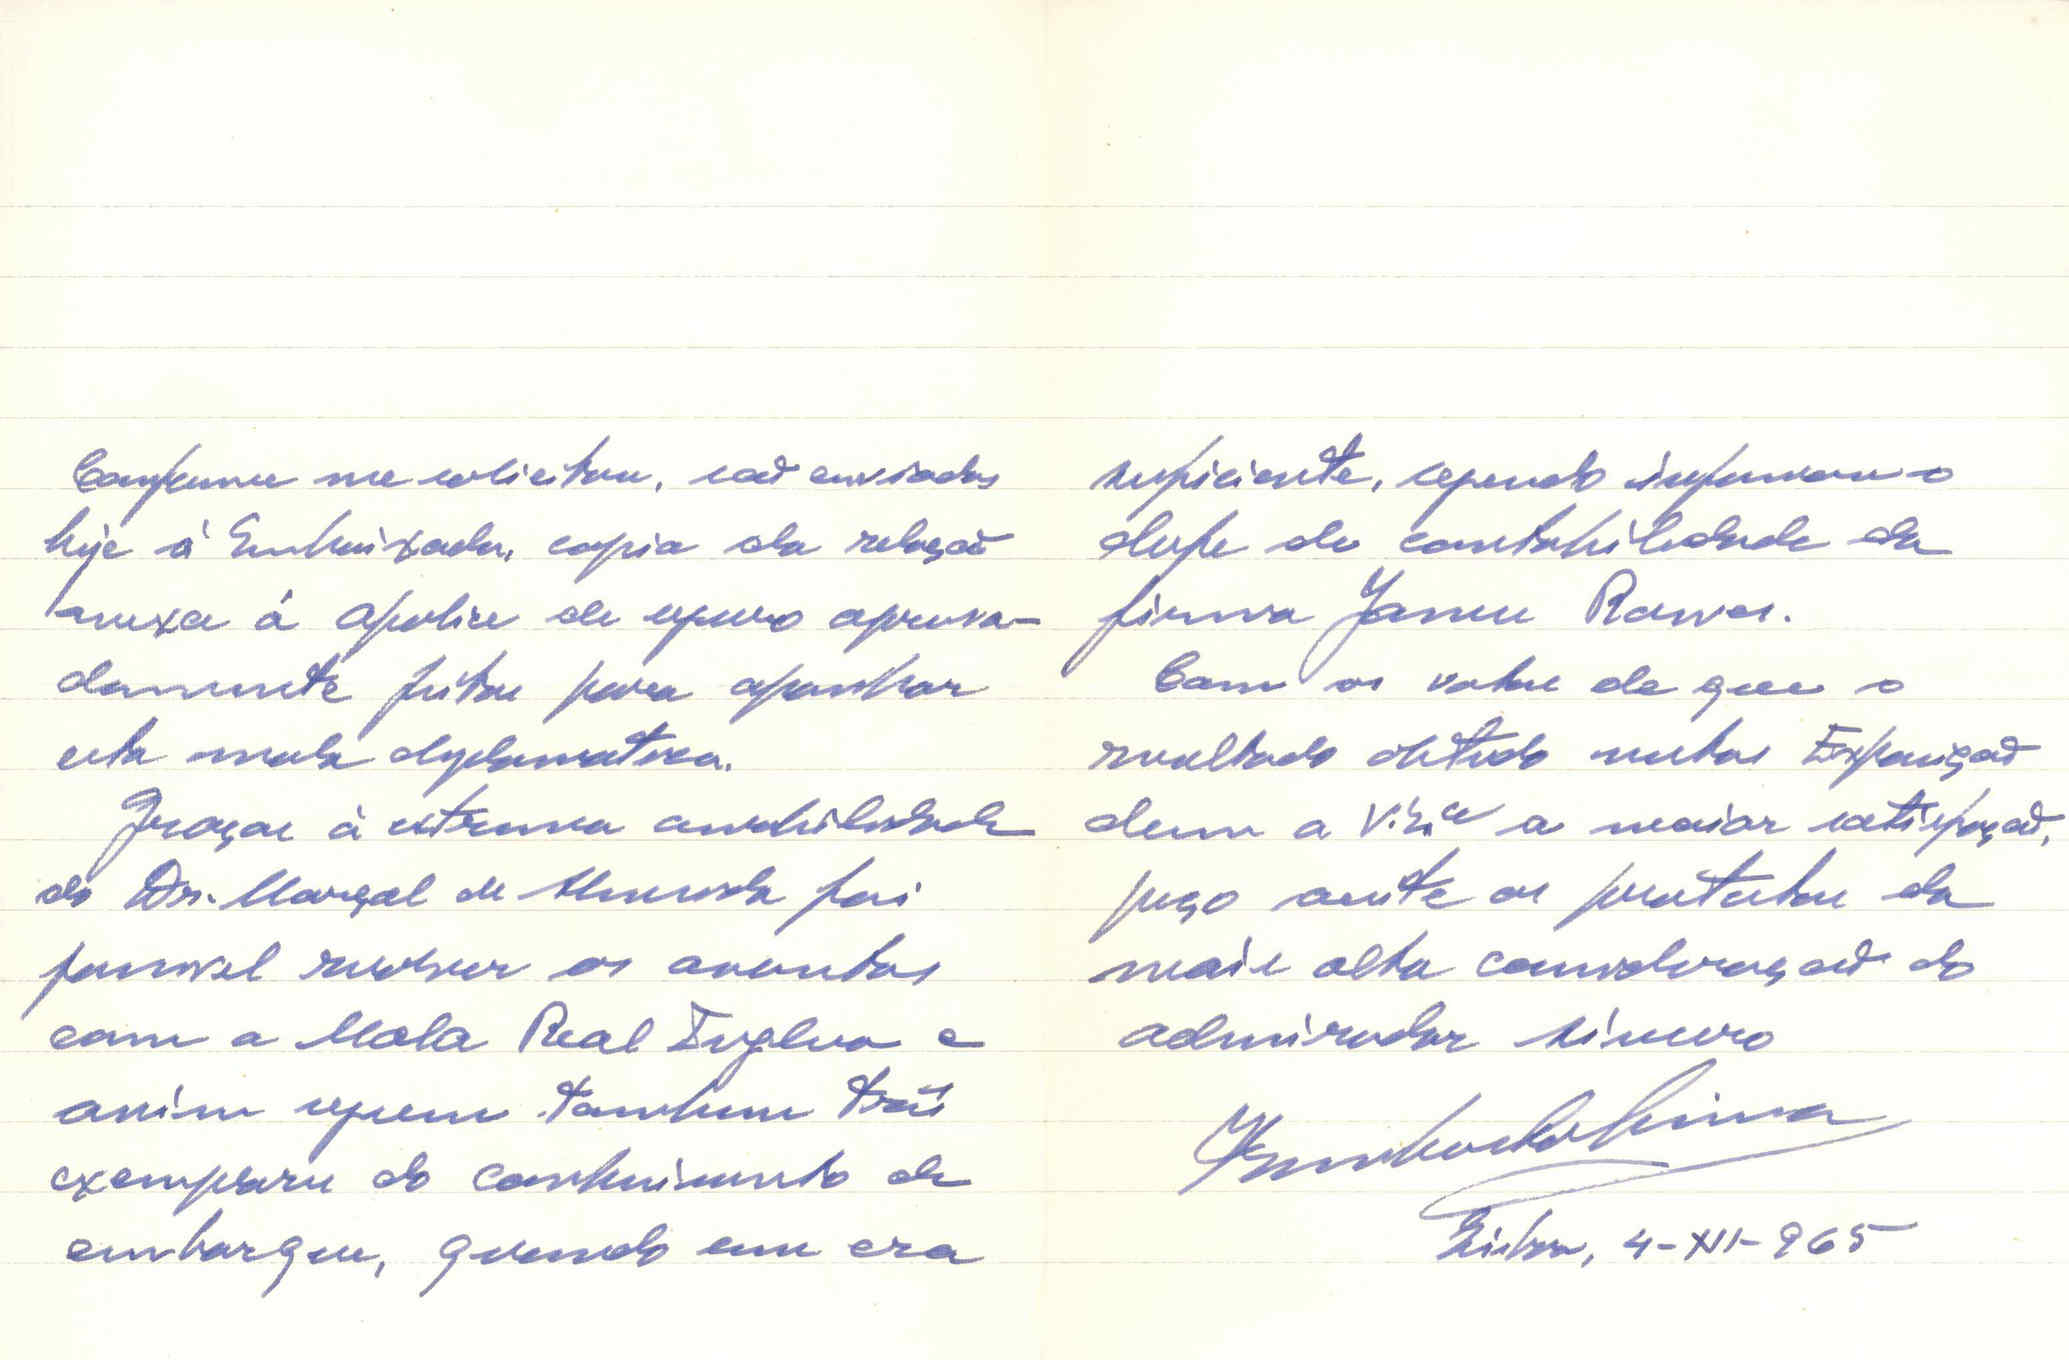 Conforme me solicitou, são enviados
hoje à Embaixada, copia da relação
anexa á apolice de seguro apressa-
damente feita para apanhar
esta mala diplomatica.
Graças à extrema amabilidade
do Dr. Marçal de Almeida foi
possivel resolver os assuntos
com a Mala Real Inglesa e
assim seguem tambem três
exemplares do conhecimento de
embarque, quando um era
suficiente, segundo informou o
chefe de contabilidade da
firma James Rawes.
Com os votos de que o
resultado obtido nestas Exposição
dem a V. Ex.cia a maior satisfação,
peço aceite os protestos da
mais alta consideração do
admirador sincero
Lisboa, 4-XI-965